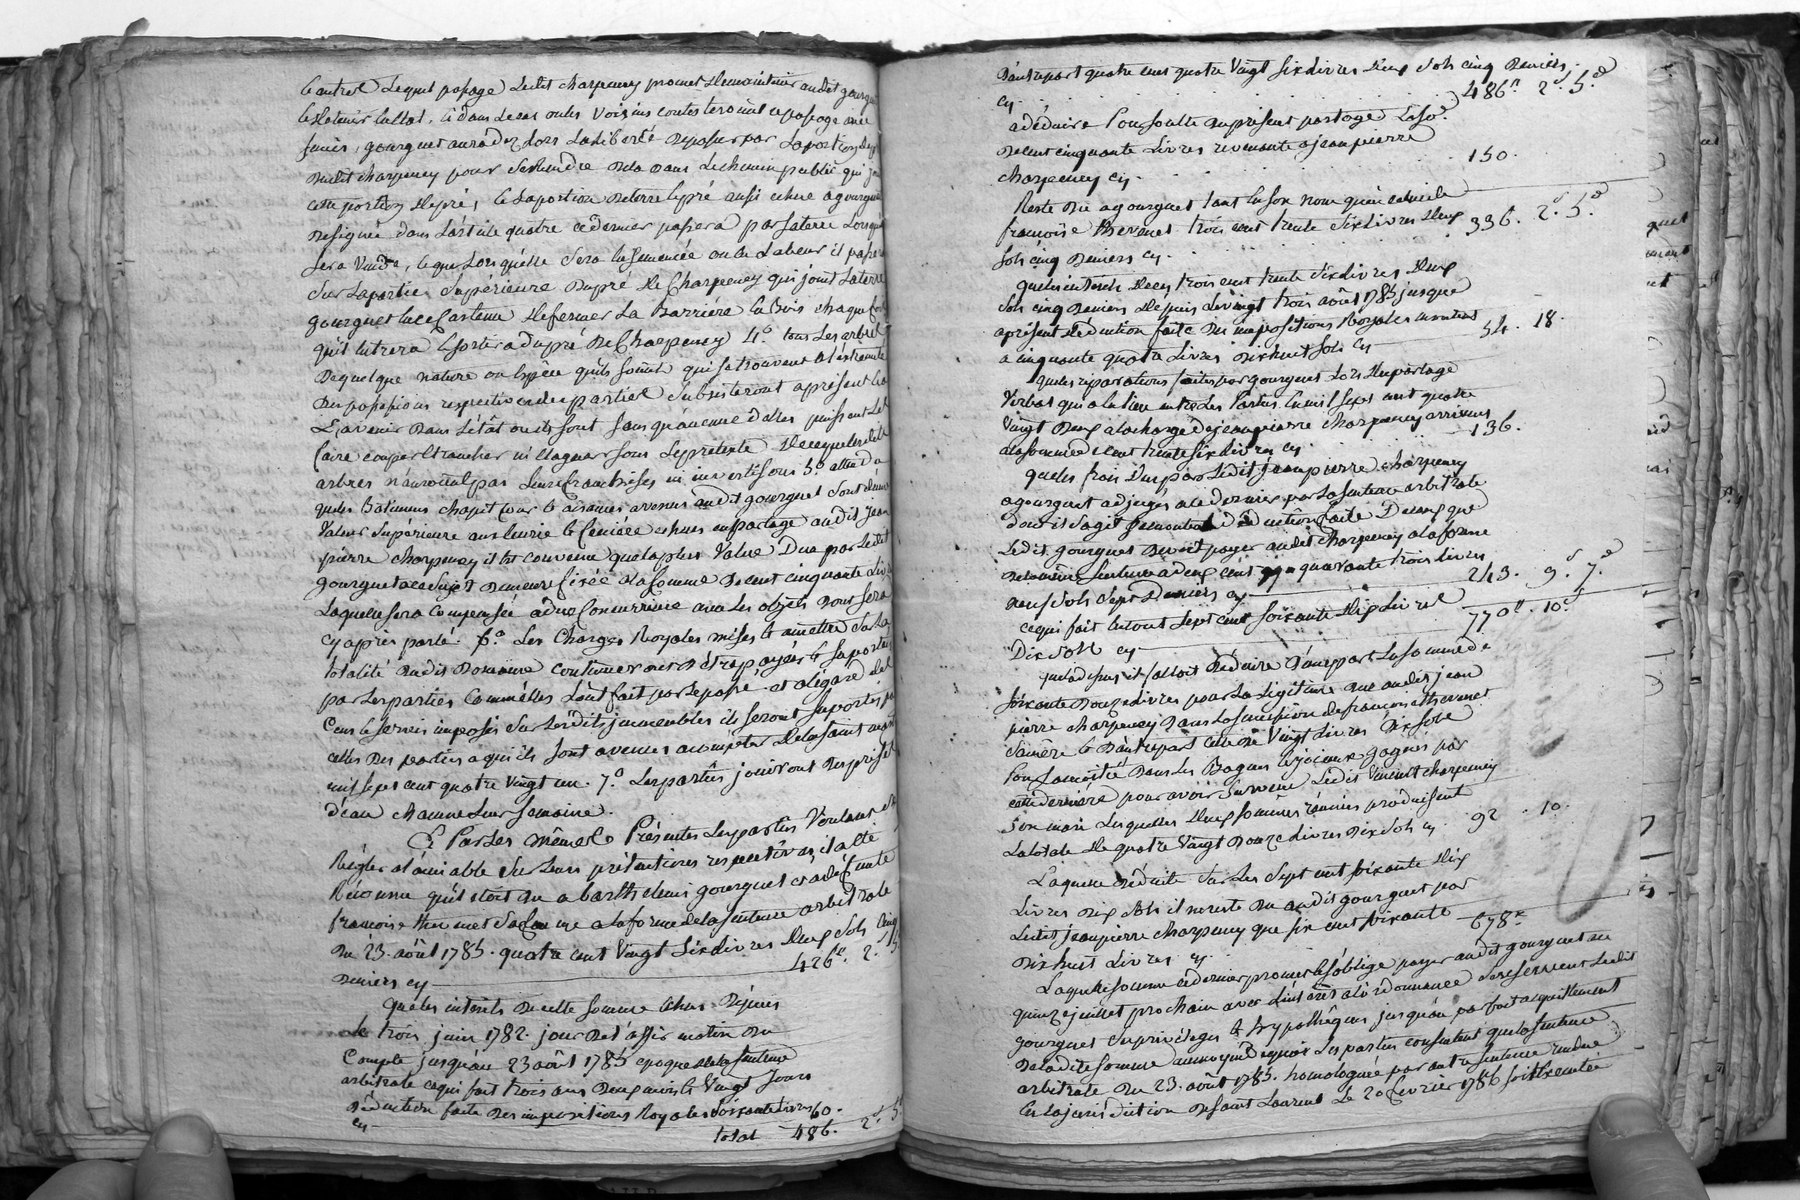 et autres lequel passage ledit charpeney promet de maintenir audit gourguet
et tenir en etat, et dans le cas ou les voisins contesteroint ce passage avec
succès, gourguet aura dez lors la liberté de passer par la portion
dudit charpeney pour se rendre dela dans le chemin public qui
cette portion de pré, et la portion de terre et pré aussi echue a gourguet
designée dans l'article quatre ce dernier passera par la terre lorsqu
sera vuide, et que lorsqu'elle sera ensemencée ou en labeur il passera
sur la partie supérieure du pré de Charpeney qui joint la terre
gourguet en ce cas tenu de fermer la Barriére en Bois chaque fois
qu'il entrera et sortira du pré de Charpeney 4.° tous les arbres
de quelque nature ou espèce qu'ils soint qui se trouvent a l'extremité
des possessions respectives des parties subsisteront a présent et a
L'avenir dans l'état ou ils sont sans qu'aucune d'elles puissent les
faire couper et trancher ni élaguer sous le prétexte de ce que lesdits
arbres n'auroint pas leurs franchises ni investisons 5.° attendu
que les Batimens chapit cour et aisances avenus audit gourguet sont d'une
valeur supérieure aux ecurie et feniére echues en partage audit jean
pierre charpeney il est convenu que la plus value due par ledit
gourguet a ce sujet demeure fixée a la somme de cent cinquante Livres
Laquelle sera compensée a due concurrence avec les objets dont sera
cy après parlé. 6.° Les Charges Royales mises et a mettre sur la
totalité dudit Domaine continueront d'étre payées et suportées
par les parties comme elles l'ont fait par le passé et a l'egard des
cens et servis imposés sur lesdits immeubles ils seront suportés par
celles des parties a qui ils sont avenus a compter de la saint martin
mil sept cent quatre vingt un. 7.° Les parties jouiront des prises
d'eau chacune leur semaine.
Et Par les mêmes Présentes les parties voulans se
Régler a l'amiable sur leurs prétentions respectives, il a été
Reconnu qu'il étoit du a barthelemi gourguet et a defunte
françoise thevenet sa femme a la forme de la sentence arbitrale
du 23. août 1785. quatre cent vingt six livres deux sols cinq
deniers cy 426# 2s 5
que les intérets de cette somme échus depuis
le trois juin 1782. jour de l'affirmation du
Compte jusqu'au 23 août 1785 epoque de la sentence
arbitrale ce qui fait trois ans deux mois et vingt jours
déduction faite des impositions Royales soixante livres 60.
cy
total 486. 2s 5
D'autre part quatre cent quatre vingt six livres deux sols cinq deniers.
cy. 486# 2s 5d
a déduire pour soulte du présent partage la so.e
de cent cinquante Livres revenante a jean pierre
charpeney cy. 150.
Reste du a gourguet tant en son nom qu'en celui de
françoise thevenet trois cent trente six livres deux 336. 2s 5d
sols cinq deniers cy.
que les intérets de ces trois cent trente six livres deux
sols cinq deniers depuis le vingt trois août 1785 jusque
a présent déduction faite des impositions Royales montent
a cinquante quatre Livres dix huit sols cy 54. 18.
que les réparations faites par gourguet lors du partage
verbal qui a eu lieu entre les parties en mil sept cent quatre
vingt deux a la charge de jean pierre charpeney arrivent
a la somme de cent trente six livres cy. 136.
que les frais dus par ledit jean pierre charpeney
a gourguet adjugés a ce dernier par la sentence arbitrale
dont il s'agit se montent déduction faite de ceux que
ledit gourguet devoit payer audit charpeney a la forme
de la même sentence a deux cent quarante trois livres
neuf sols sept deniers cy 243. 9s 7d
ce qui fait en tout sept cent soixante dix Livres
Dix sols cy 770# 10s
sur la il falloit déduire d'une part la somme de
soixante douze Livres pour la Légitime due audit jean
pierre charpeney dans la succession de françoise thevenet
sa mère et d'autre part celle de vingt Livres dix sols
pour la moitié dans les Bagues et joyaux gagnés par
cette derniére pour avoir survécu ledit vincent charpeney
son mari lesquelles deux sommes réunies produisent
la totale de quatre vingt douze Livres dix sols cy. 92. 10.
Laquelle déduite sur les sept cent soixante dix
Livres dix sols il ne reste du audit gourguet par
ledit jean pierre charpeney que six cent soixante
dix huit Livres cy. 678#
Laquelle somme ce dernier promet et s'oblige payer audit gourguet au
quinze juillet prochain avec l'intéret a l'ordonnance se reservent ledit
gourguet ses privileges et hypothêques jusqu'au parfait acquittement
de ladite somme au moyen de quoi les parties consentent que la sentence
arbitrale du 23. août 1785. homologuée par autre sentence rendue
en la jurisdiction de saint Laurent le 20 fevrier 1786 soit exécutée